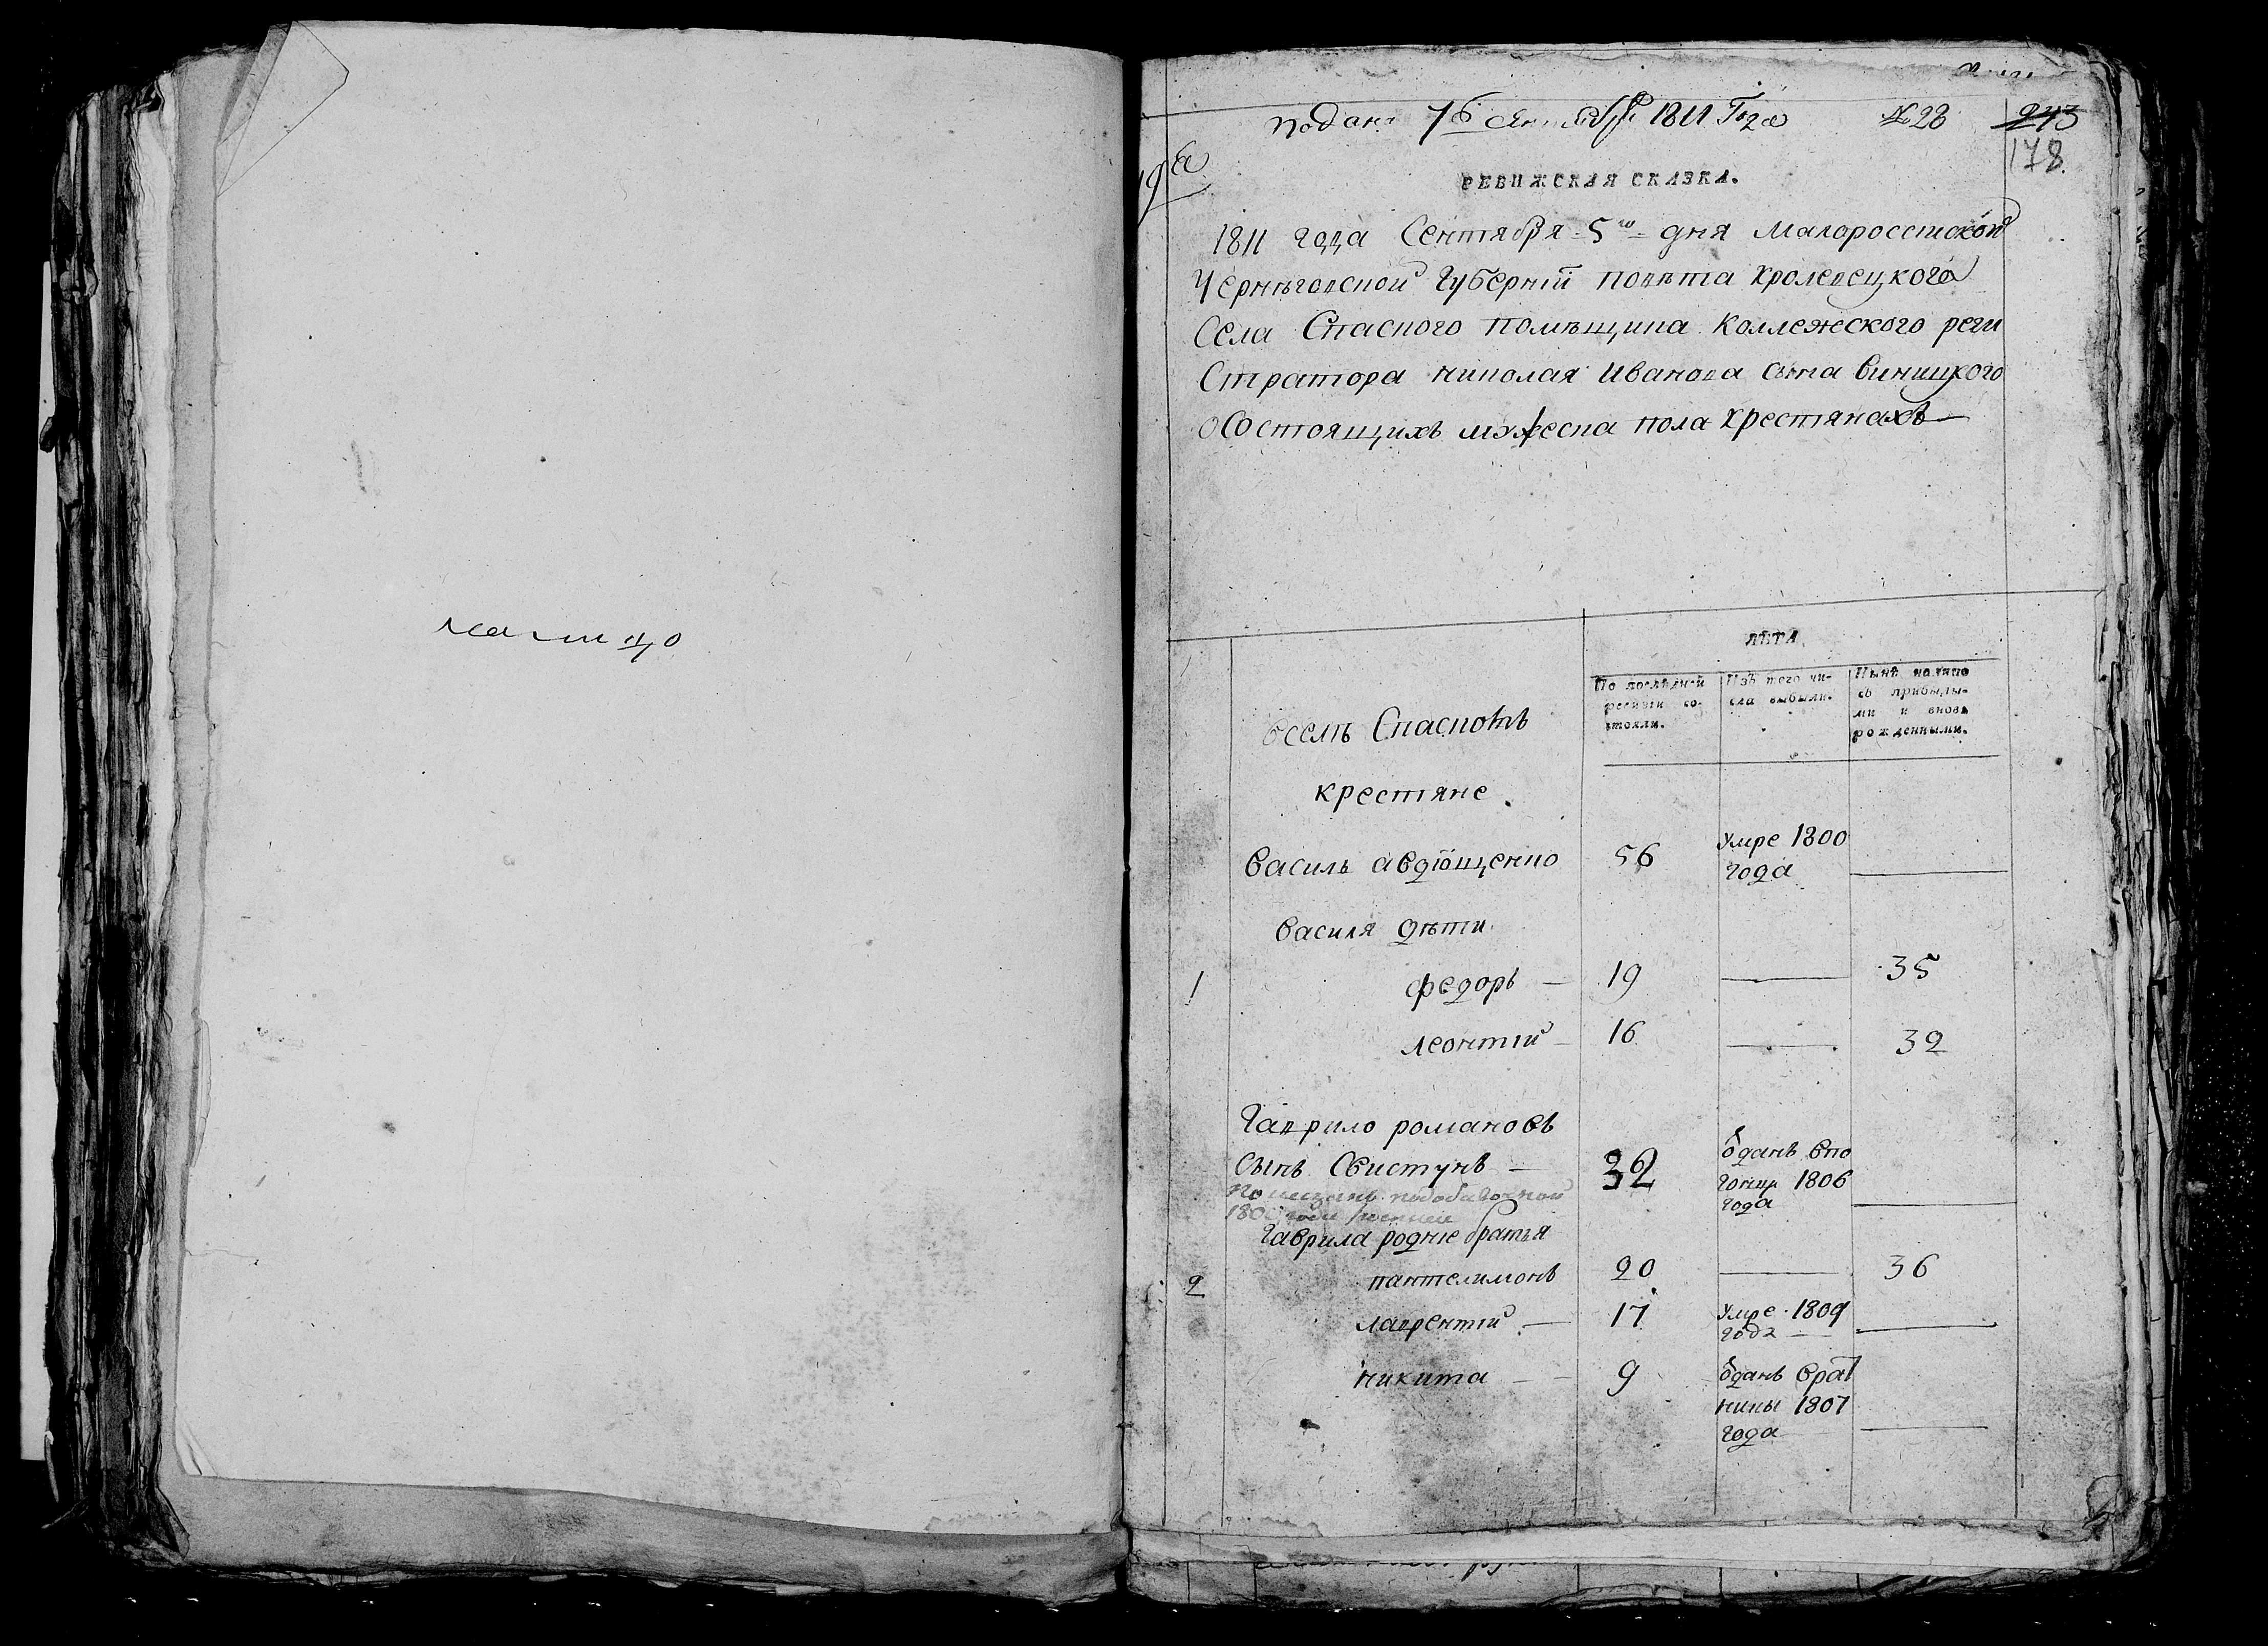 на лицо
подана 7б сентября 1811 Года №28 243
178
19
РЕВИЖСКАЯ СКАЗКА.
1811 года Сентября 5го дня Малоросстской
Чернѣговской Губернїй повѣта Кролевецкого
Села Спаского помѣщика Коллежского реги
Стратора николая Иванова сына виницкого
оСостоящихъ мужеска пола крестянахъ
ЛѢТА
По послѣдней ревизіи состояли.
Изъ того числа выбыли.
Нынѣ налицо съ прибылыми и вновь рожденными.
вселѣ Спаскомъ
крестяне
василь авдющенко 56 умре 1800
года
василя дѣти
1 федоръ — 19 — 35
леонтїй — 16 — 32
гаврило романовъ
сынъ Свистунъ — 32 ѿданъ впо
гонци 1806
года
гаврила роднїе братья
2 пантелимонъ 20 — 36
лаврентїй — 17 умре 1809
года —
никита — 9 ѿданъ врат
ники 1807
года —